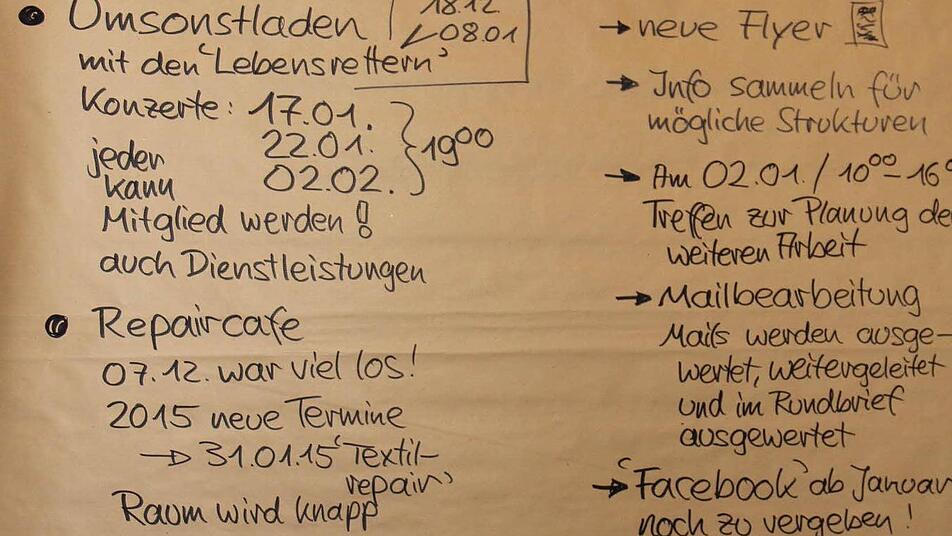 Umsonstladen
18.12
08.01
mit den 'Lebensrettern'
Konzerte: 17.01.
22.01.
02.02.
19⁰⁰
jeder
kann
Mitglied werden!
auch Dienstleistungen
Repaircafe
07.12. war viel los!
2015 neue Termine
→ 31.01.15 'Textil-
repair'
Raum wird knapp
→ neue Flyer
→ Info sammeln für
mögliche Strukturen
→ Am 02.01. / 10⁰⁰-16⁰
Treffen zur Planung de
weiteren Arbeit
→ Mailbearbeitung
Mails werden ausge-
wertet, weitergeleitet
und im Rundbrief
ausgewertet
→ 'Facebook' ab Januar
noch zu vergeben!